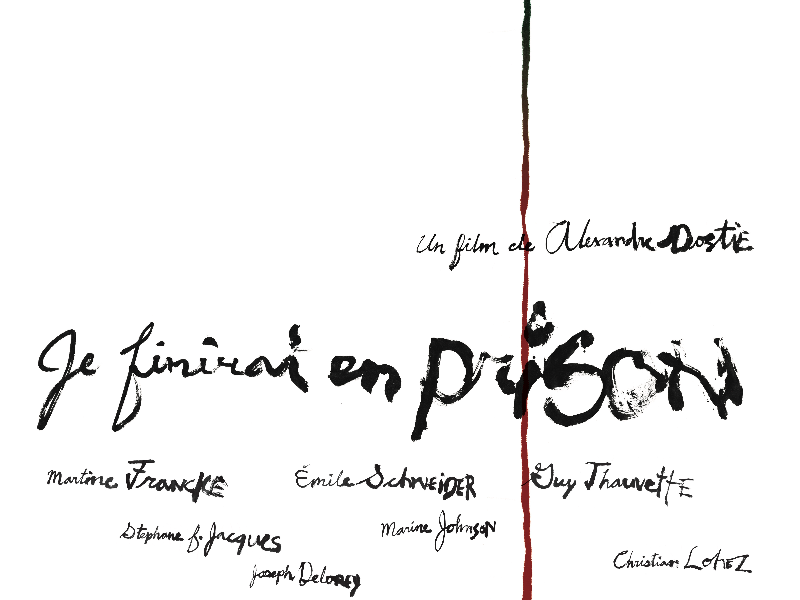 Un film de Alexandre Dostie
Je finirai en prison
Martine Francke Émile Schneider Guy Thauvette
Stéphane f. Jacques Marine Johnson
Joseph Delorey Christian Lopez